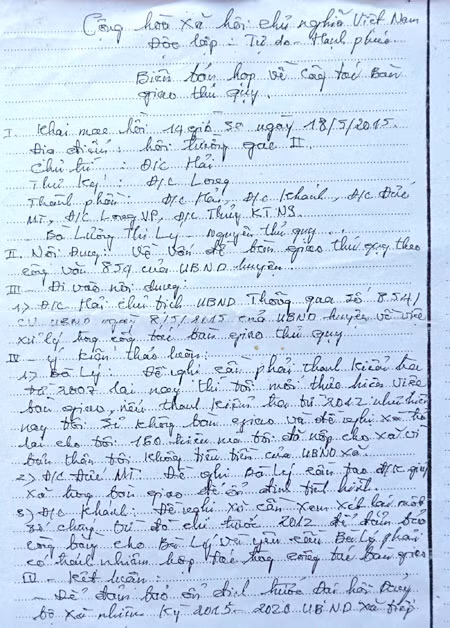 Cộng hòa xã hội chủ nghĩa Việt Nam
Độc lập - Tự do - Hạnh phúc
Biên bản họp về công tác bàn
giao thủ quỹ.
I. Khai mạc hồi 14 giờ 50 ngày 18/5/2015.
Địa điểm: hội trường gác II
Chủ trì : Đ/c Hải
Thư ký : Đ/c Long
Thành phần: Đ/c Hải, Đ/c Khánh, Đ/c Đức
MT, Đ/c Long VP, Đ/c Thủy KTNS
Bà Lường Thị Lý nguyên thủ quỹ
II. Nội Dung: Về vấn đề bàn giao thủ quỹ theo
công văn 854 của UBND huyện.
III - Đi vào nội dung:
1) Đ/c Hải chủ tịch UBND Thông qua số 854/
CV UBND ngày 8/5/2015 của UBND huyện về việc
xử lý trong công tác bàn giao thủ quỹ
IV - ý kiến thảo luận:
1) Bà Lý: Đề nghị cần phải thanh kiểm tra
từ 2007 lại nay thì tôi mới thực hiện việc
bàn giao, nếu thanh kiểm tra từ 2012 như hiện
nay tôi sẽ không bàn giao và đề nghị xã trả
lại cho tôi 160 triệu mà tôi đã nộp cho xã vì
bản thân tôi không tiêu tiền của UBND xã.
2) Đ/c Đức MT: Đề nghị Bà Lý cần tạo Đ/k giúp
xã trong bàn giao để ổn định tình hình.
3) Đ/c Khánh: Đề nghị xã cần xem xét lại một
số chứng từ đã chi trước 2012 để đảm bảo
công bằng cho Bà Lý và yêu cầu Bà Lý phải
có trách nhiệm hợp tác trong công tác bàn giao
IV - Kết luận:
- Để đảm bảo ổn định trước Đại hội Đảng
bộ xã nhiệm kỳ 2015 - 2020 UBND xã tiếp